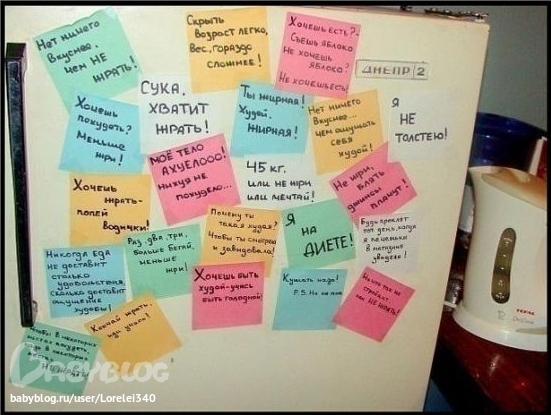 Нет ничего
вкуснее,
чем НЕ
ЖРАТЬ!
Скрыть
возраст легко,
вес, гораздо
сложнее!
Хочешь есть?-
Съешь яблоко
Не хочешь
яблоко?
Не хочешь есть!
ДНЕПР 2
Хочешь
похудеть?
Меньше
жри!
СУКА,
ХВАТИТ
ЖРАТЬ!
Ты жирная!
Худей,
ЖИРНАЯ!
Нет ничего
вкуснее...
чем ощущать
себя
худой!
Я
НЕ
ТОЛСТЕЮ!
Хочешь
жрать-
попей
водички!
МОЁ ТЕЛО
АХУЕЛООО!
нихуя не
похудело...
45 кг.
или не жри
или мечтай!
Не жри,
блять
джинсы
плачут!
Никогда еда
не доставит
столько
удовольствия,
сколько доставит
ощущение
худобы!
Раз, два, три,
больше бегай,
меньше
жри!
Почему ты
такая худая?
Чтобы ты смотрела
и завидовала!
Я
НА
ДИЕТЕ!
Будь проклят
тот день, когда
я пельмени
в магазине
увидела!
Кончай жрать,
иди учись!
Хочешь быть
худой-учись
быть голодной!
Кушать надо!
P.S. Но не
Ничто так не
стройнит
как НЕ ЖРАТЬ!
Чтобы в некоторых
местах похудеть,
надо в некоторых
местах
TEFAL
BABYBLOG
babyblog.ru/user/Lorelei340